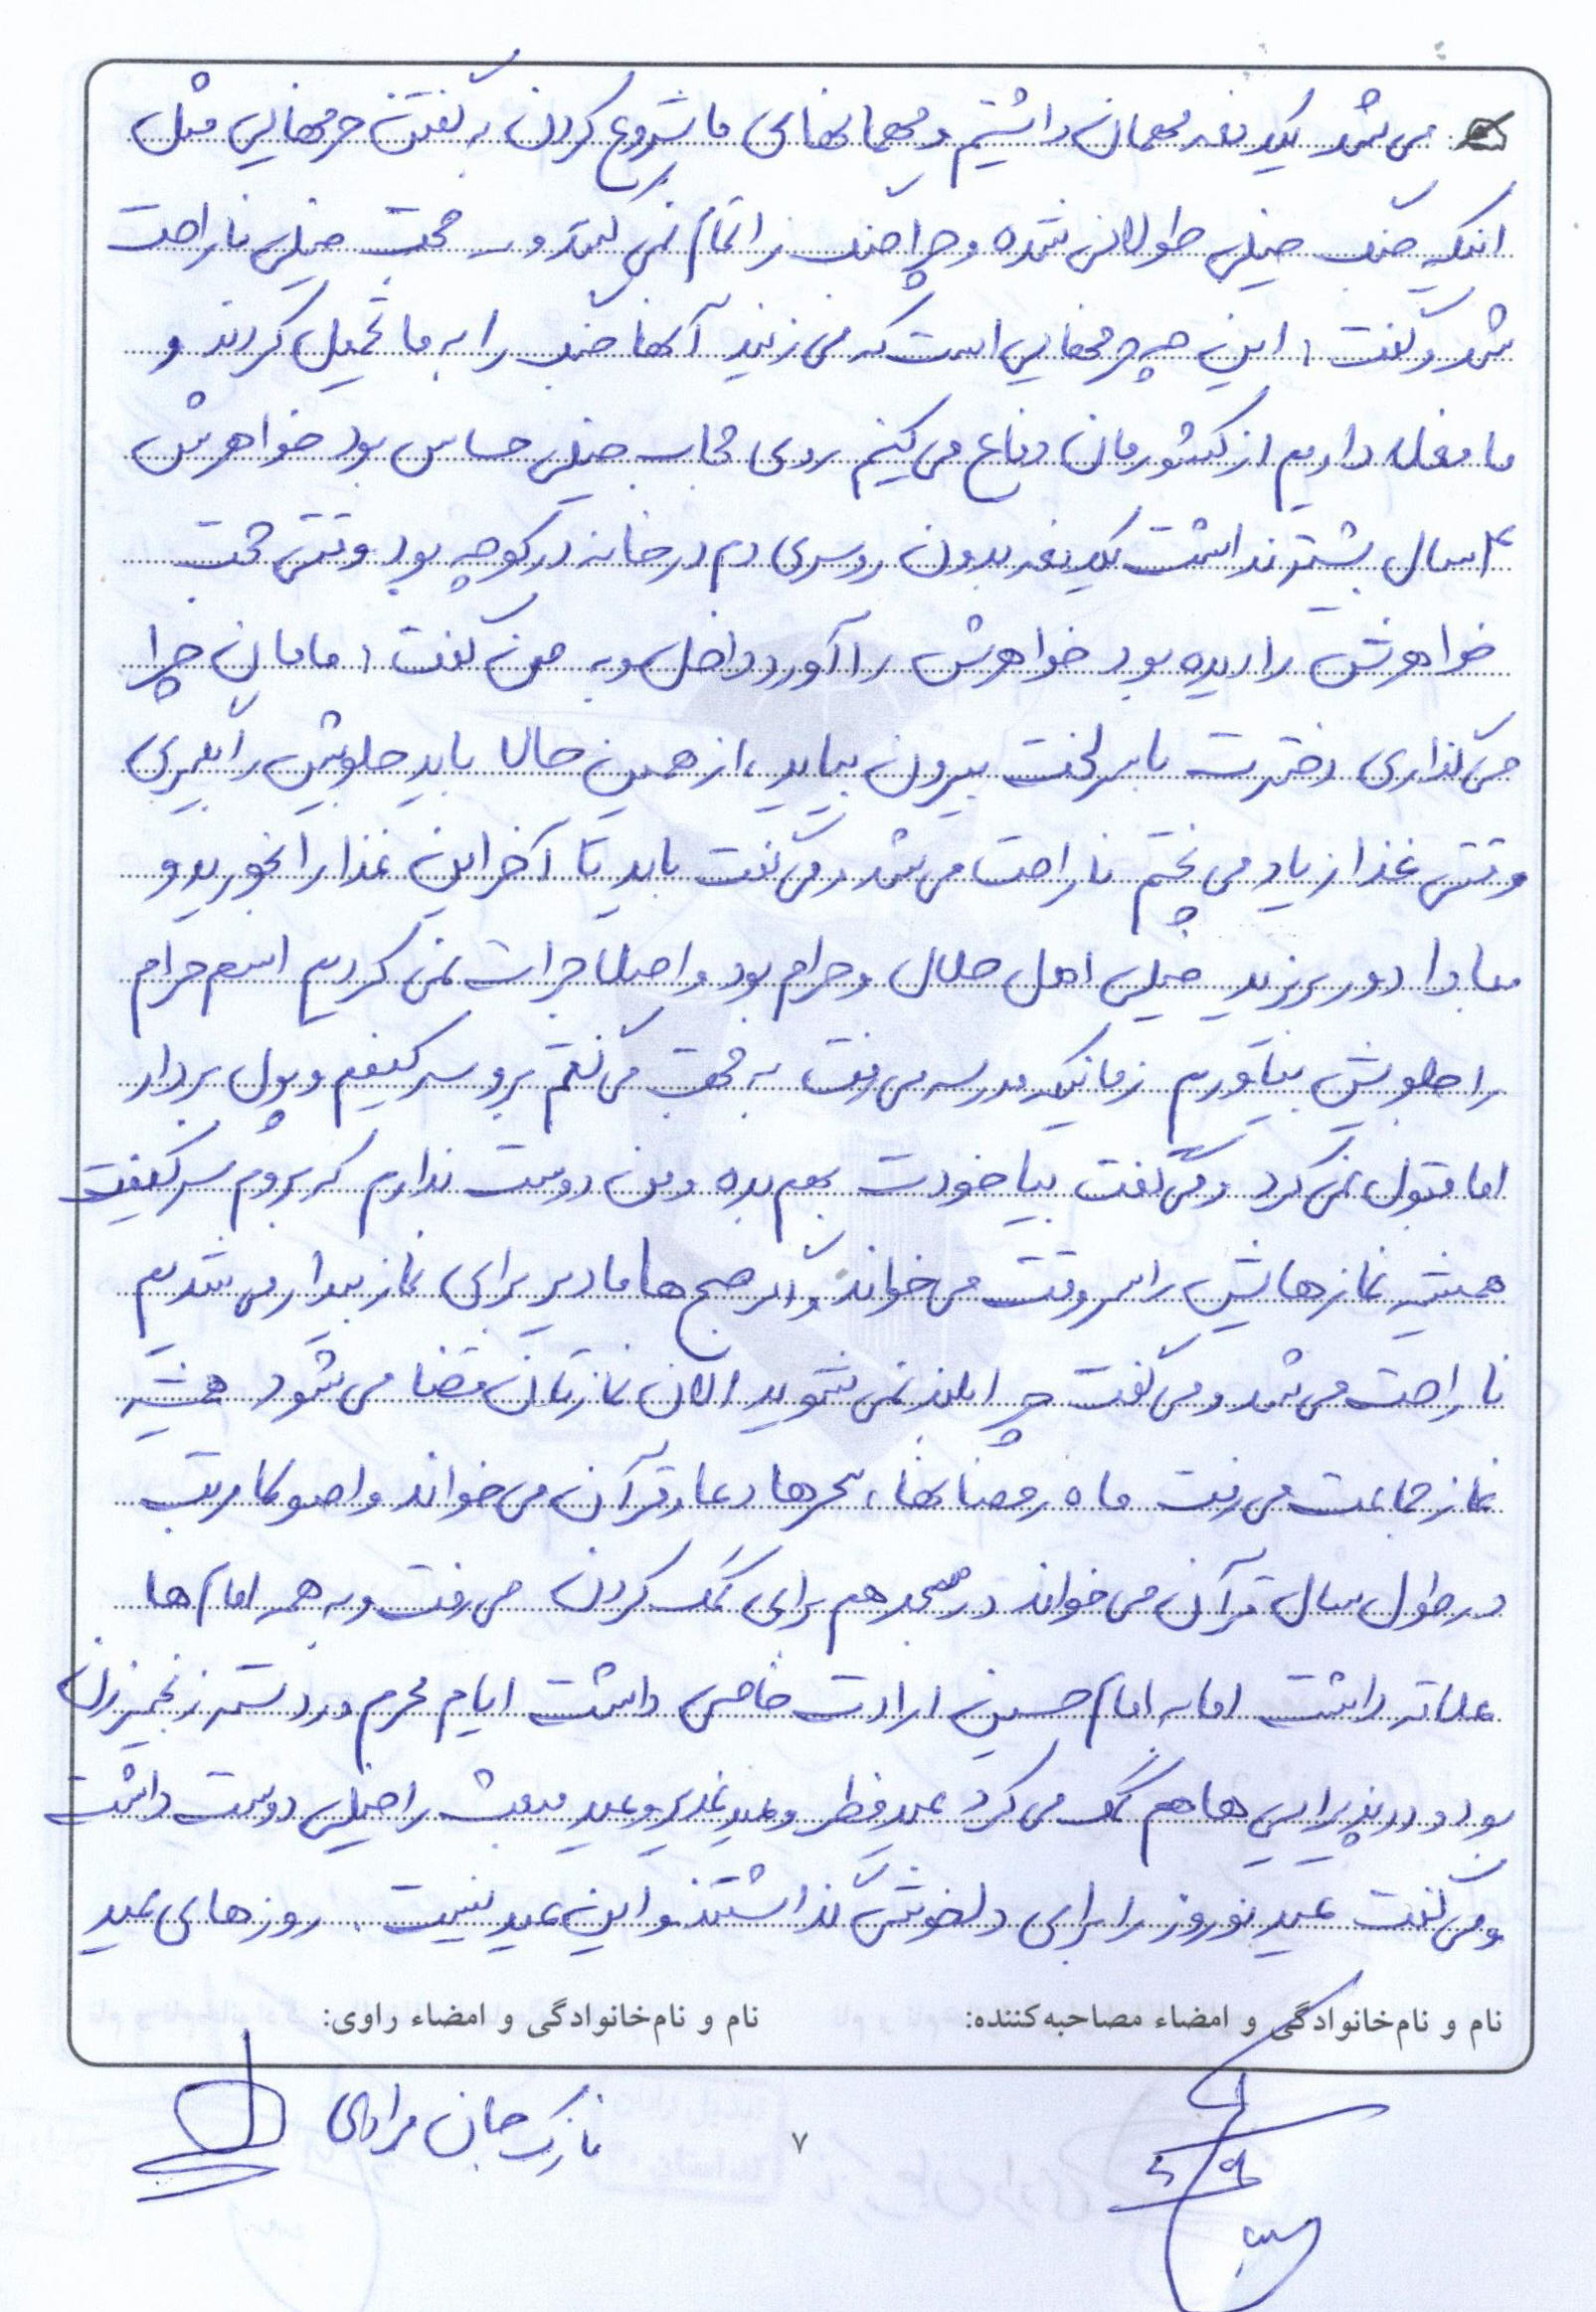 می‌شد یکدفعه مهمان داشتیم و مهمانهای ما شروع کردن به گفتن حرفهایی مثل
اینکه جنگ خیلی طولانی شده و چرا جنگ را تمام نمی‌کنند و حجت خیلی ناراحت
شد و گفت: این چه حرفهایی است که می‌زنید آنها جنگ را به ما تحمیل کردند و
ما فعلا داریم از کشورمان دفاع می‌کنیم روی حجاب خیلی حساس بود خواهرش
۴ سال بیشتر نداشت یکدفعه بدون روسری دم در خانه در کوچه بود وقتی حجت
خواهرش را دیده بود خواهرش را آورد داخل و به من گفت: مامان چرا
می‌گذاری دخترت با سر لخت بیرون بیاید، از همین حالا باید جلویش را بگیری
وقتی غذا زیاد می‌پختم ناراحت می‌شد و می‌گفت باید تا آخر این غذا را بخورید و
مبادا دور بریزید خیلی اهل حلال و حرام بود و اصلا جرات نمی‌کردیم اسم حرام
را جلویش بیاوریم زمانیکه مدرسه می‌رفت به حجت می‌گفتم برو سر کیفم و پول بردار
اما قبول نمی‌کرد و می‌گفت بیا خودت بهم بده و من دوست ندارم که بروم سر کیفت
همیشه نمازهایش را سر وقت می‌خواند و اگر صبح‌ها ما دیر برای نماز بیدار می‌شدیم
ناراحت می‌شد و می‌گفت چرا بلند نمی‌شوید الان نمازتان قضا می‌شود همیشه
نماز جماعت می‌رفت ماه رمضانها، سحرها دعا و قرآن می‌خواند و اصولا مرتب
در طول سال قرآن می‌خواند در مسجد هم برای کمک کردن می‌رفت و به همه امام‌ها
علاقه داشت اما به امام حسین ارادت خاصی داشت ایام محرم در دسته زنجیرزن
بود و در پذیرایی‌ها هم کمک می‌کرد عید فطر و عید غدیر و عید مبعث را خیلی دوست داشت
و می‌گفت عید نوروز را برای دلخوشی گذاشتند و این عید نیست. روزهای عید
نام و نام‌خانوادگی و امضاء مصاحبه‌کننده: نام و نام‌خانوادگی و امضاء راوی:
نازک جان مرادی
۷